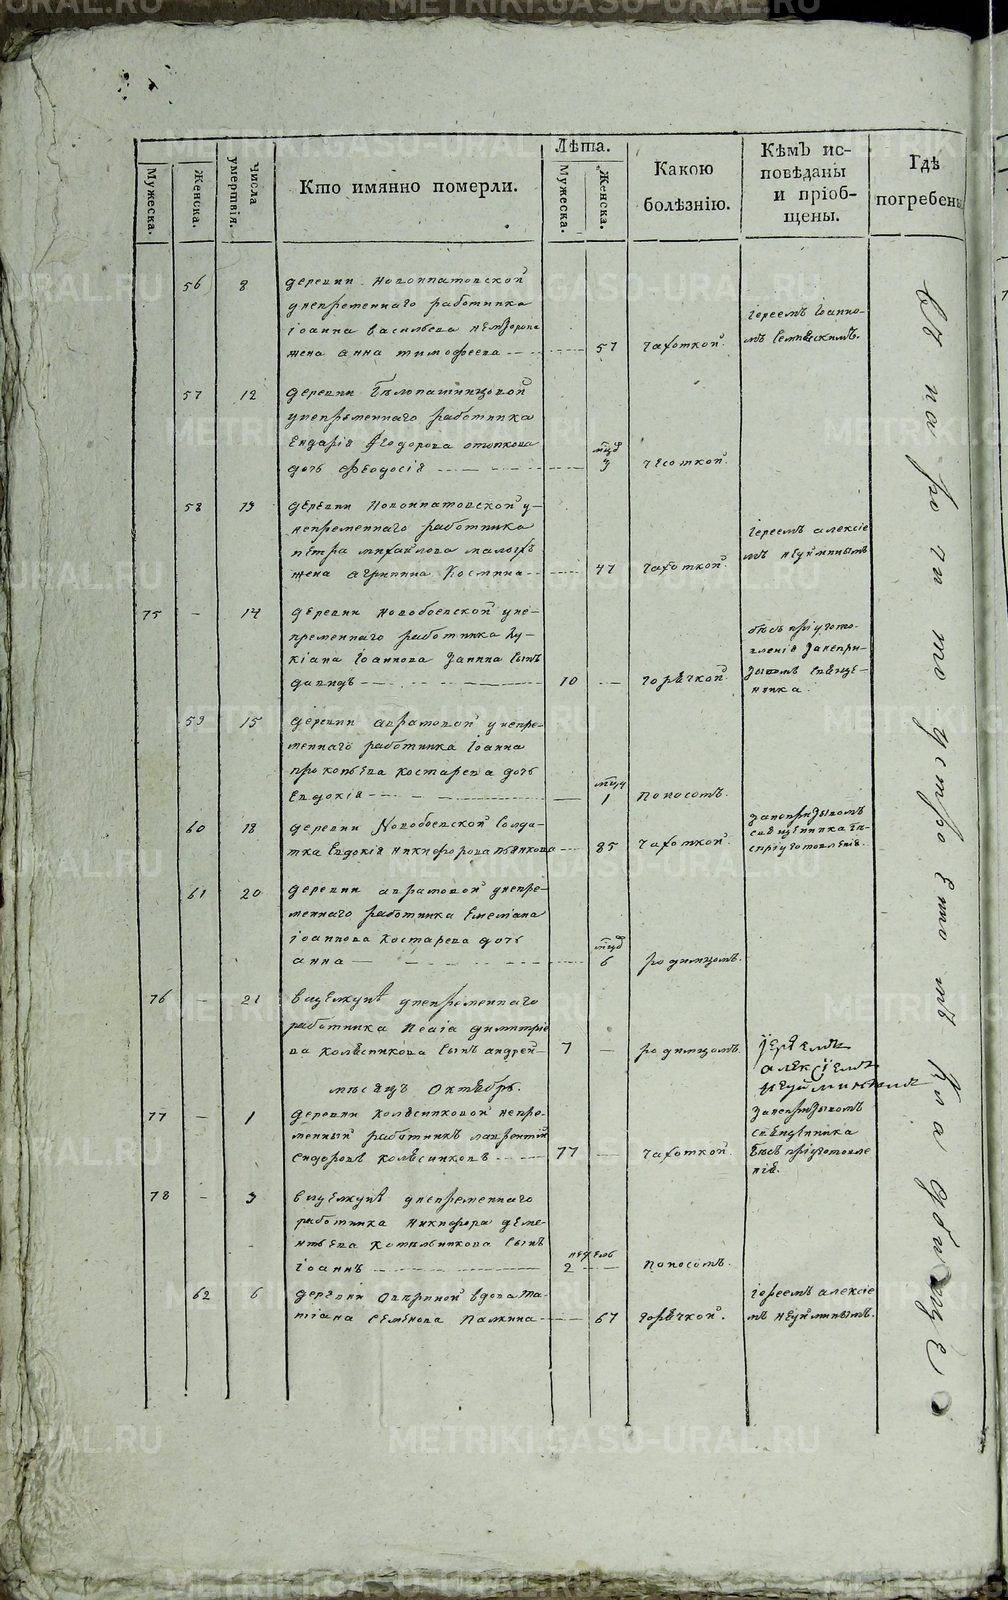 Мужеска.
Женска.
Числа умертвія.
Кто имянно померли.
Лѣта.
Мужеска.
Женска.
Какою болѣзнію.
Кѣмъ исповѣданы и пріобщены.
Гдѣ погребены
56 8 деревни Новоипатовской
унепременнаго работника
іоанна васильева
жена анна тимофеева 57 чахоткой.
іереемъ іоанно-
мъ
57 12 деревни Белопашинцовой
унепременнаго работника
Ѳеодорова
дочь феодосія 3 чесоткой.
58 13 деревни Новоипатовской у-
непременнаго работника
петра михайлова малыхъ
жена агрипина Костина 47 чахоткой.
іереемъ алексіе
мъ неуйминымъ
75 14 деревни Новобоевской уне-
пременнаго работника Лу-
кіана іоаннова Занина сынъ
давидъ 10 горѣчкой
безъ пріугото-
вленія Занепри-
зывомъ свѧще-
нника
59 15 деревни аврамовой унепре-
меннаго работника іоанна
прокопьева костарева дочь
Евдокія 1 поносомъ.
60 18 деревни Новобоевской Солда-
тка Евдокія никифорова пьянкова 85 чахоткой.
занепризывомъ
священника бе-
спріуготовленія.
61 20 деревни аврамовой унепре-
меннаго работника Емеліана
іоаннова костарева дочь
анна 6 родимцомъ.
76 21 унепременнаго
работника Исаіа димитріе
ва колѣсникова сынъ андрей 7 родимцомъ.
іереемъ
алексіемъ
неуйминымъ
месяцъ Октябрь.
77 1 деревни колѣсниковой непре-
менный работникъ лаврентій
сидоровъ колѣсниковъ 77 чахоткой.
Занепризывомъ
священника
безъ пріуготовле
нія.
78 3 унепременнаго
работника никифора деме-
нтьева котельникова сынъ
іоаннъ 2 недель поносомъ.
62 6 деревни вдова та-
тіана семенова палкина 67 горѣчкой.
іереемъ алексіе
мъ неуйминымъ.
METRIKI.GASO-URAL.RU